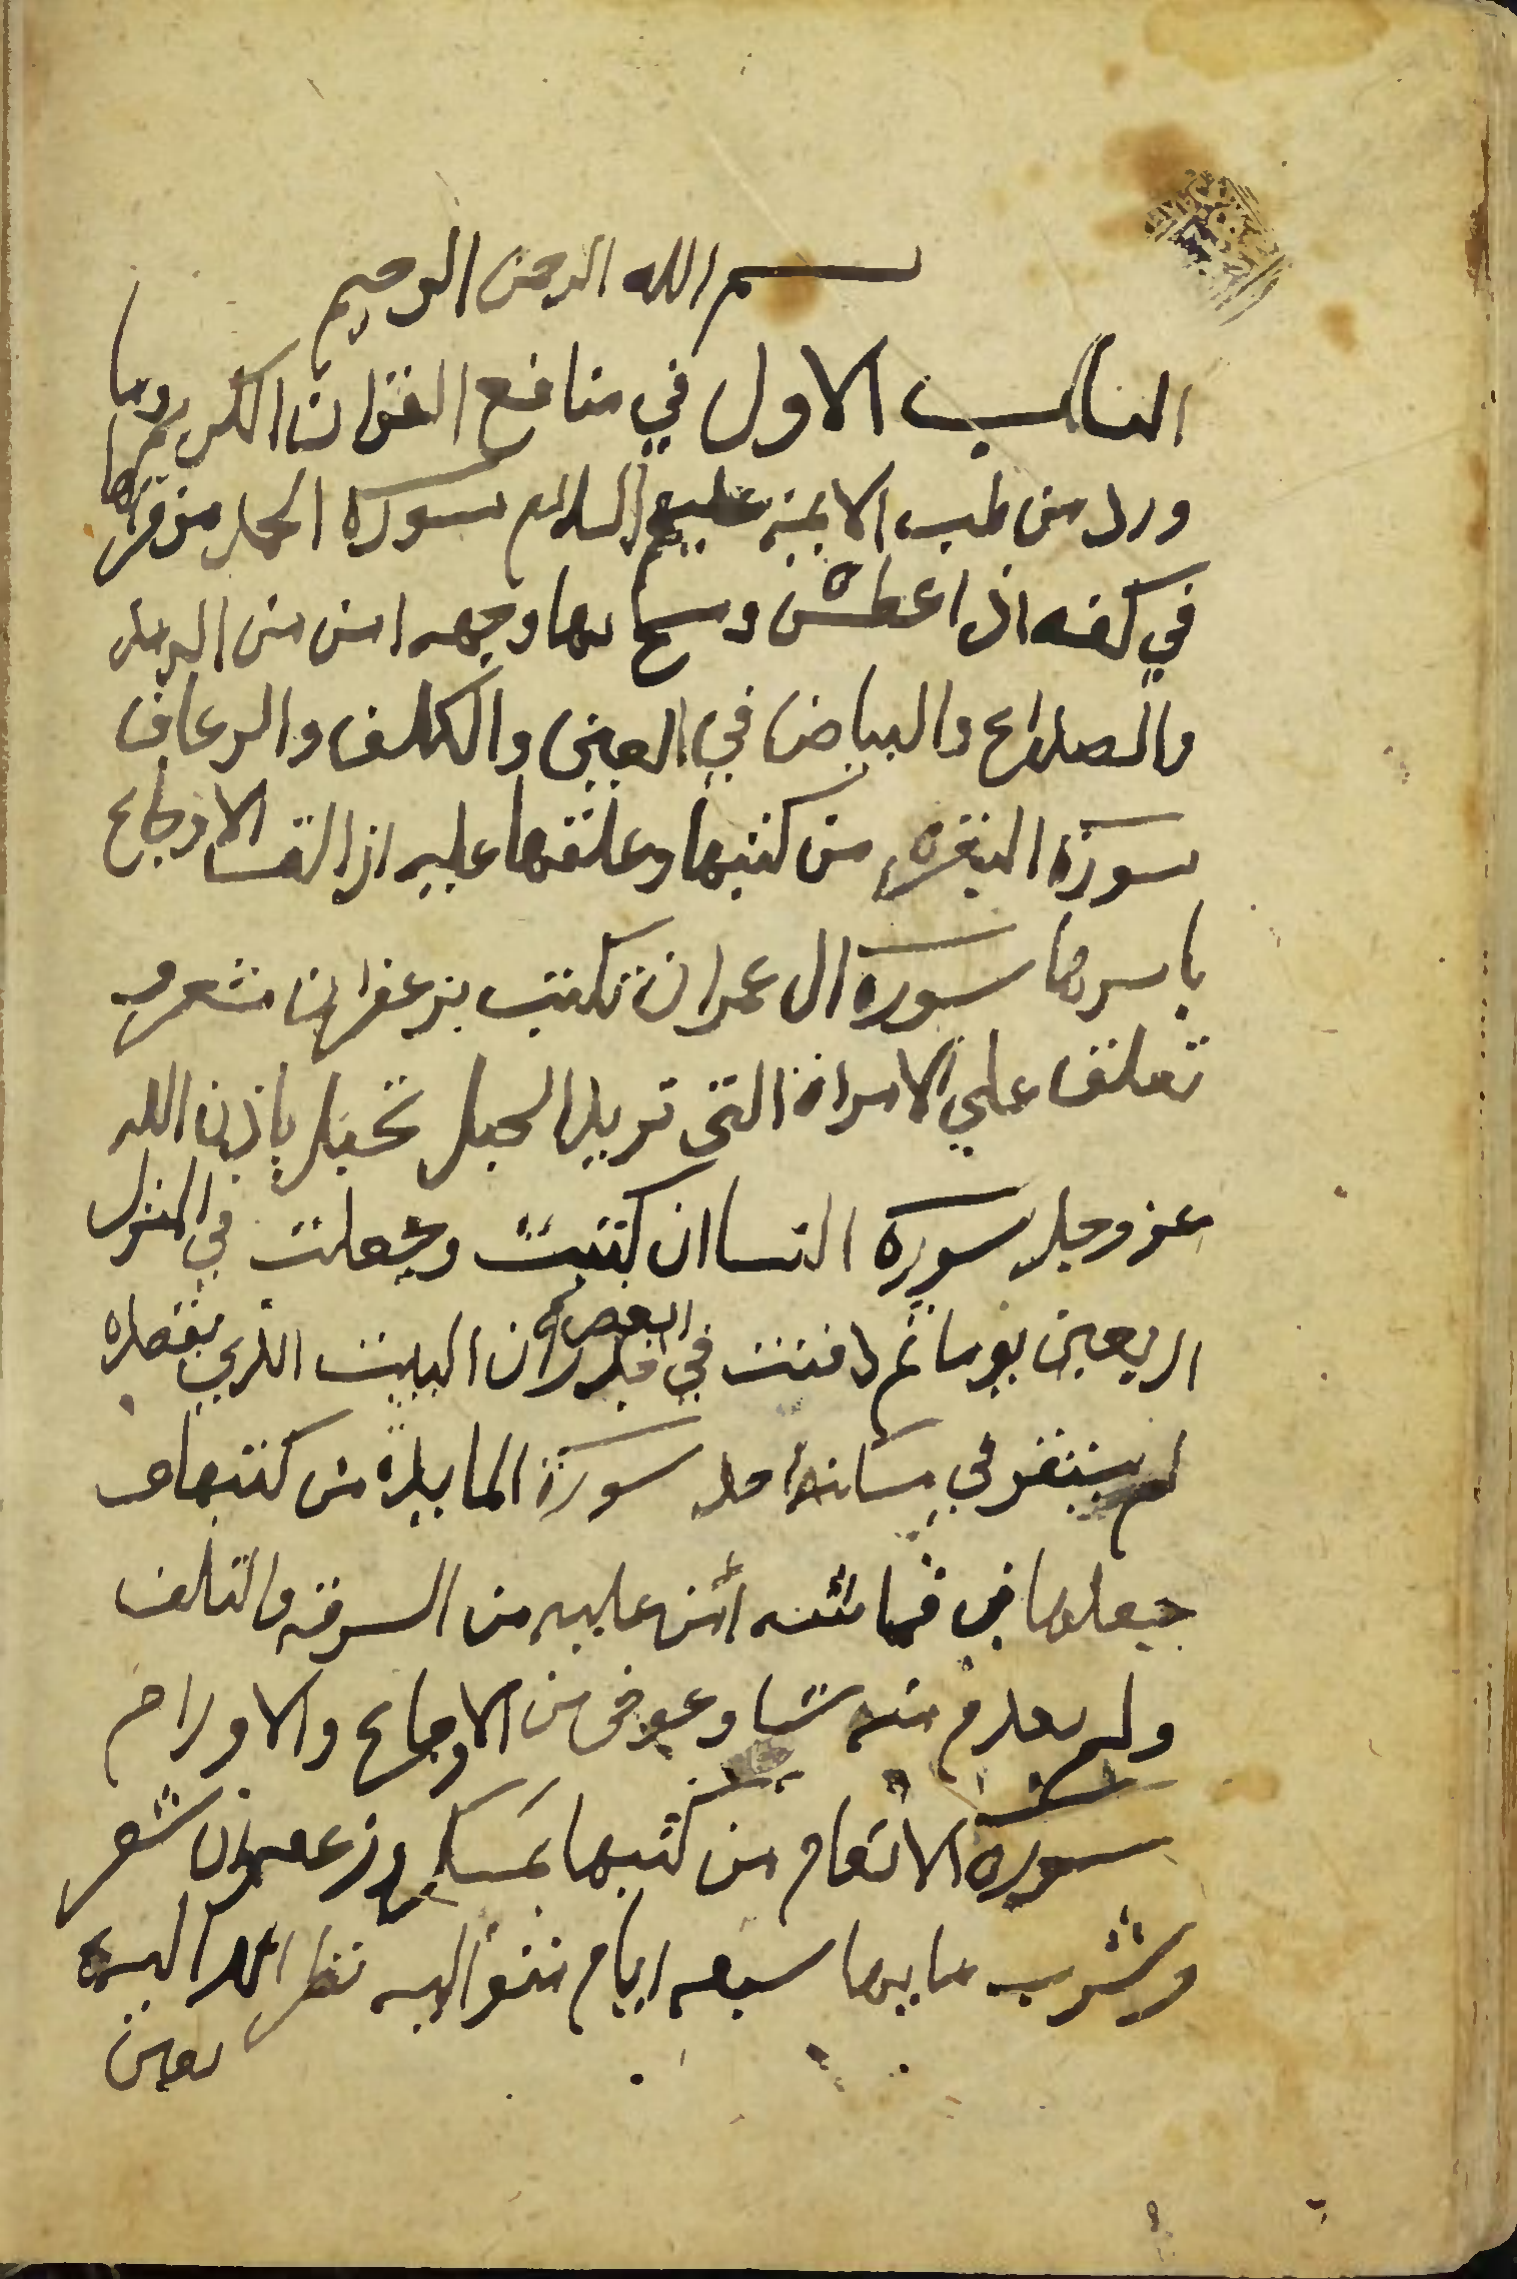 بسم الله الرحمن الرحيم
الباب الاول في منافع القران الكريم وما
ورد من طب الايمة عليهم السلام سورة الحمد من قراها
في كفه اذا عطس ومسح بها وجهه امن من الرمد
والصداع والبياض في العين والكلف والرعاف
سورة البقرة من كتبها وعلقها عليه ازالت الاوجاع
باسرها سورة ال عمران تكتب بزعفران شعر و
تعلق علي الامراة التي تريد الحبل تحبل باذن الله
عز وجل سورة النسا ان كتبت وجعلت في المنزل
اربعين يوما ثم دفنت في بعض جدران البيت الذي يقصده
لم يستقر في مسكنه احد سورة المايدة من كتبها و
جعلها في قماشه امن عليه من السرقه والتلف
ولم يعدم منه شيا وعوفي من الاوجاع والاورام
سورة الانعام من كتبها بمسك وزعفران شعر
وشرب مايها سبعه ايام متواليه نظر الله اليه
بعين